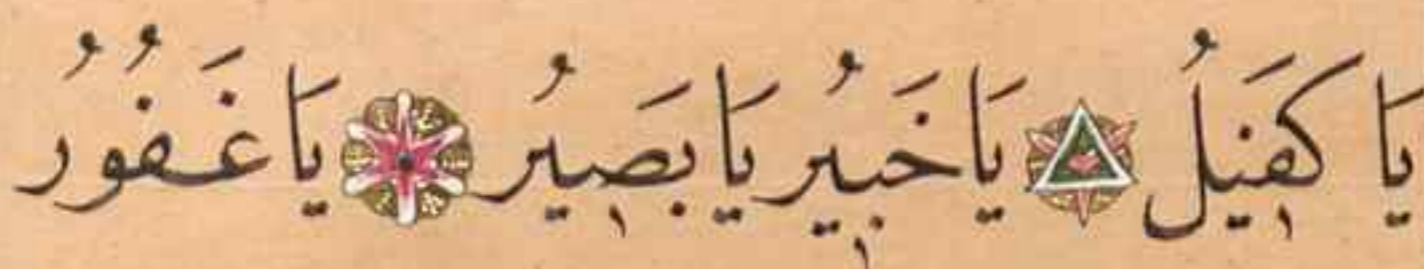 يَا كَفِيلُ يَا خَبِيرُ يَا بَصِيرُ يَا غَفُورُ